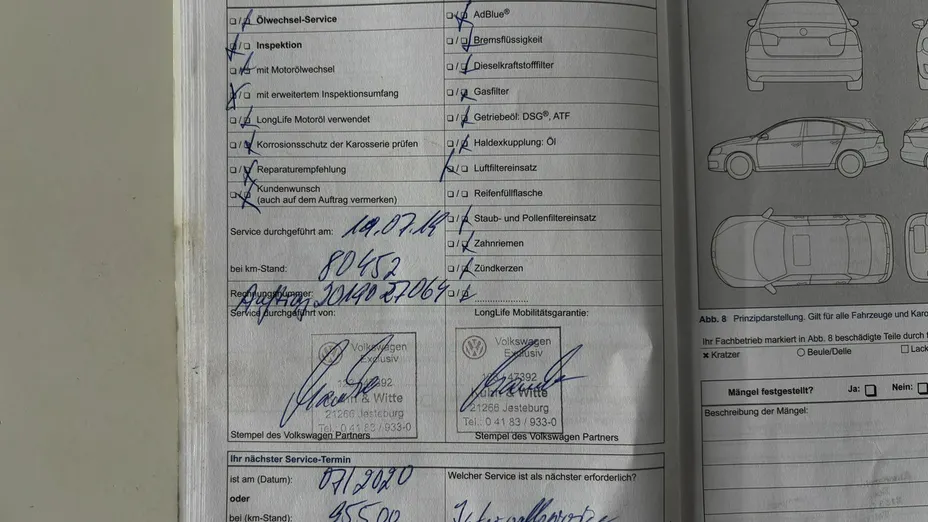 Ölwechsel-Service
Inspektion
mit Motorölwechsel
mit erweitertem Inspektionsumfang
LongLife Motoröl verwendet
Korrosionsschutz der Karosserie prüfen
Reparaturempfehlung
Kundenwunsch
(auch auf dem Auftrag vermerken)
Service durchgeführt am: 19.07.19
bei km-Stand: 80452
Rechnungsnummer: Auftrag 2019027064
Service durchgeführt von:
Volkswagen
Exclusiv
& Witte
21266 Jesteburg
Tel.: 0 41 83 / 933-0
Stempel des Volkswagen Partners
AdBlue®
Bremsflüssigkeit
Dieselkraftstofffilter
Gasfilter
Getriebeöl: DSG®, ATF
Haldexkupplung: Öl
Luftfiltereinsatz
Reifenfüllflasche
Staub- und Pollenfiltereinsatz
Zahnriemen
Zündkerzen
LongLife Mobilitätsgarantie:
Volkswagen
Exclusiv
& Witte
21266 Jesteburg
Tel.: 0 41 83 / 933-0
Stempel des Volkswagen Partners
Ihr nächster Service-Termin
ist am (Datum): 07/2020
oder
bei (km-Stand): 95500
Welcher Service ist als nächster erforderlich?
Abb. 8 Prinzipdarstellung. Gilt für alle Fahrzeuge und
Ihr Fachbetrieb markiert in Abb. 8 beschädigte Teile durch
Kratzer Beule/Delle
Mängel festgestellt? Ja: Nein:
Beschreibung der Mängel: